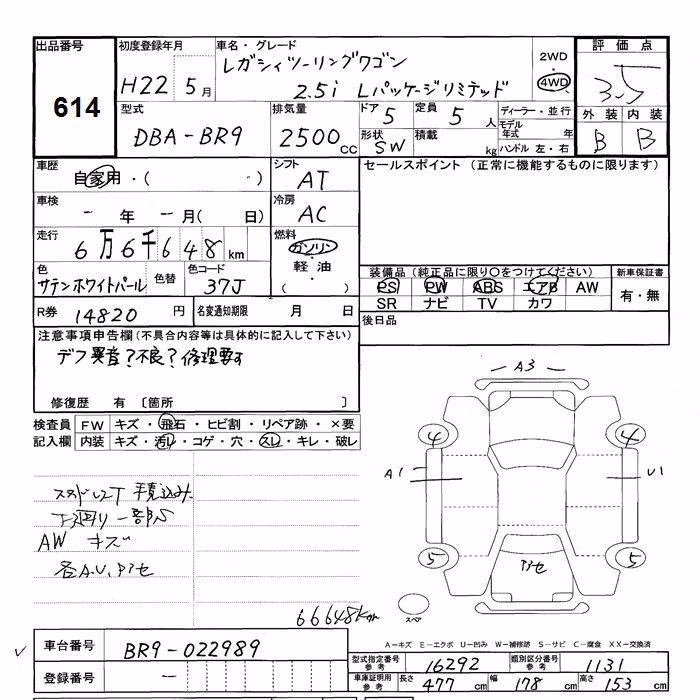 出品番号 初度登録年月 車名・グレード 評価点
614
H22 5月
レガシィツーリングワゴン
2.5i Lパッケージリミテッド
2WD
4WD
3.5
型式 排気量 ドア 5 定員 5人
DBA-BR9 2500cc
形状 SW 積載 kg
ディーラー・並行
モデル年式 年
ハンドル 左・右
外装 内装
B B
車歴 シフト セールスポイント (正常に機能するものに限ります)
自家用・( ) AT
車検 冷房
- 年 -月( 日) AC
走行 燃料
6万6千648km ガソリン
軽油
・( )
色 色替 色コード
サテンホワイトパール 37J
装備品(純正品に限り○をつけてください) 新車保証書
PS PW ABS エアB AW
SR ナビ TV カワ
有・無
R券 14820円 名変通知期限 月 日
後日品
注意事項申告欄(不具合内容等は具体的に記入して下さい)
デフ異音?不良?修理要す
修復歴 有 〔箇所 〕
検査員記入欄
FW キズ・飛石・ヒビ割・リペア跡・×要
内装 キズ・汚レ・コゲ・穴・スレ・キレ・破レ
スタッドレスT 手積込み
下廻り一部S
AW キズ
各A.U.アセ
66648km
A3
4 4
A1 U1
5 5
アセ
スペア
A-キズ E-エクボ U-凹み W-補修跡 S-サビ C-腐食 XX-交換済
車台番号 BR9-022989
登録番号 -
型式指定番号 参考 16292 類別区分番号 参考 1131
車庫証明用 参考 長さ 477cm 幅 178cm 高さ 153cm